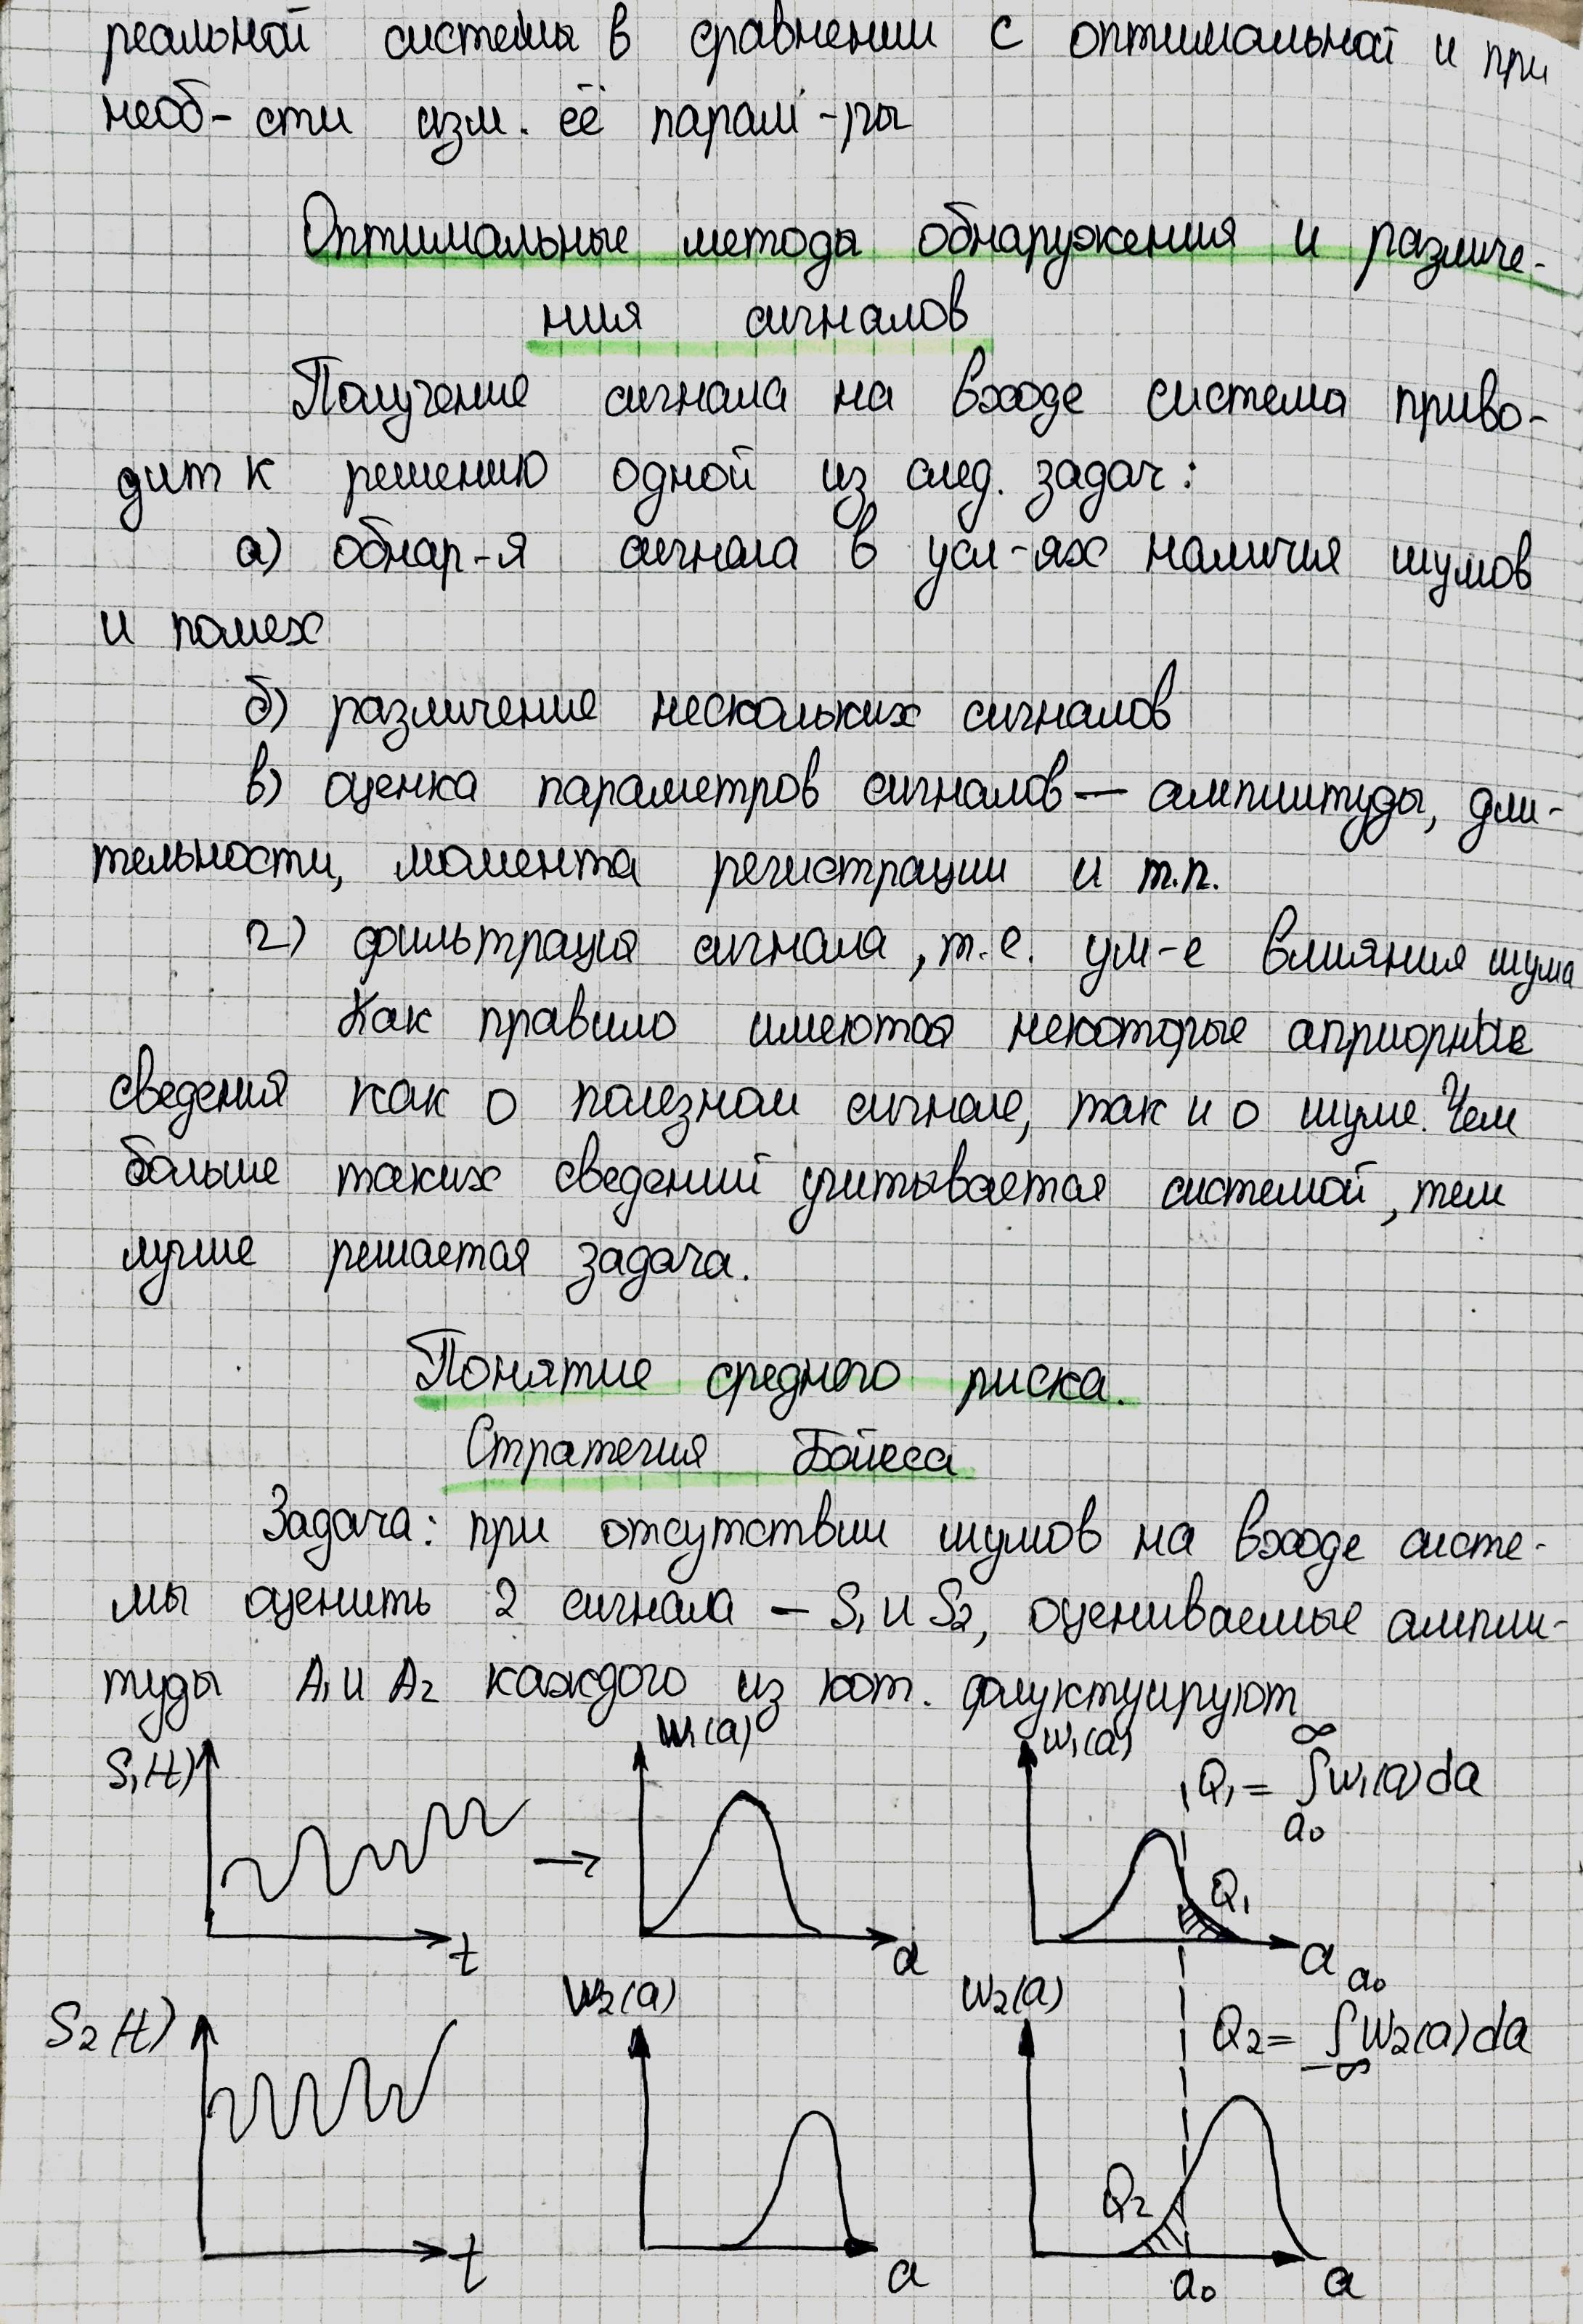 реальной системы в сравнении с оптимальной и при
необ-сти изм. её парам-ры
Оптимальные методы обнаружения и различе-
ния сигналов
Получение сигнала на входе системы приво-
дит к решению одной из след. задач:
а) обнар-я сигнала в усл-ях наличия шумов
и помех
б) различение нескольких сигналов
в) оценка параметров сигналов — амплитуды, дли-
тельности, момента регистрации и т.п.
г) фильтрация сигнала, т.е. ум-е влияния шума
Как правило имеются некоторые априорные
сведения как о полезном сигнале, так и о шуме. Чем
больше таких сведений учитывается системой, тем
лучше решается задача.
Понятие среднего риска.
Стратегия Байеса
Задача: при отсутствии шумов на входе систе-
мы оценить 2 сигнала – S₁ и S₂, оцениваемые ампли-
туды A₁ и A₂ каждого из кот. флуктуируют
S₁(t)
t
W₁(a)
a
W₁(a)
Q₁ = ∫ W₁(a) da
∞
a₀
Q₁
a
S₂(t)
t
W₂(a)
a
W₂(a)
Q₂ = ∫ W₂(a) da
a₀
-∞
Q₂
a₀
a